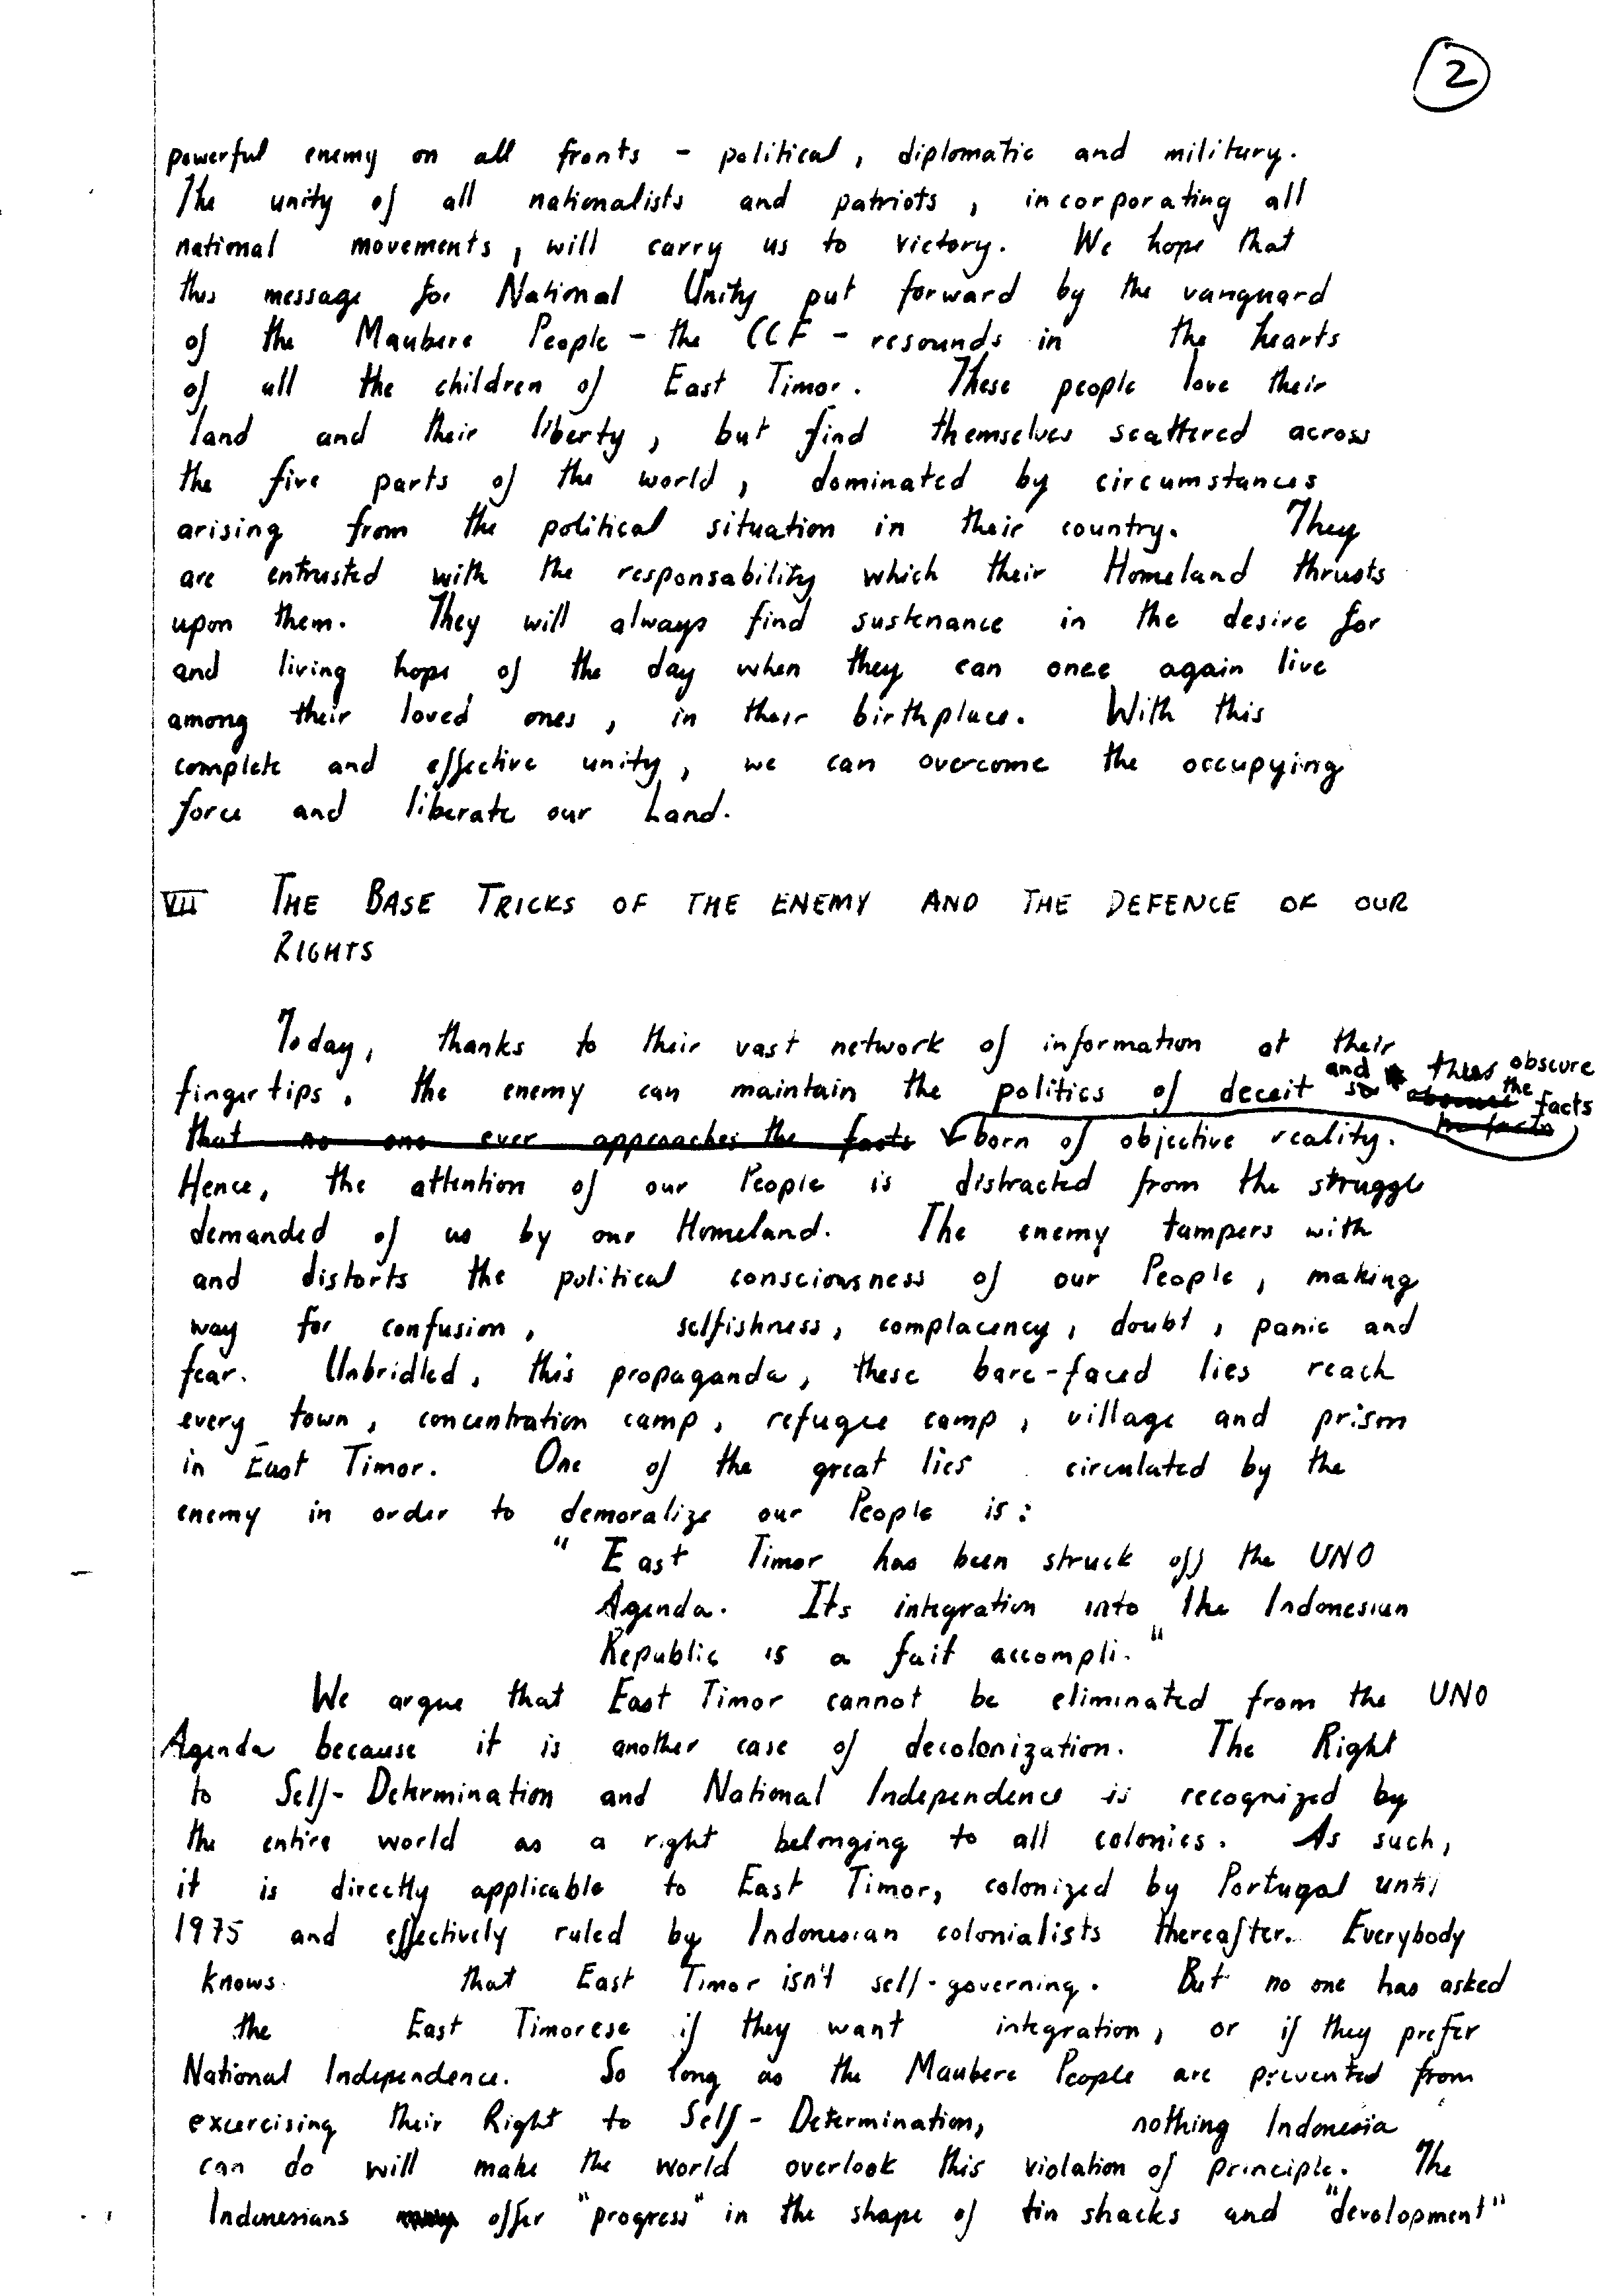 2
powerful enemy on all fronts - political, diplomatic and military.
The unity of all nationalists and patriots, incorporating all
national movements, will carry us to victory. We hope that
this message for National Unity put forward by the vanguard
of the Maubere People - the CCF - resounds in the hearts
of all the children of East Timor. These people love their
land and their liberty, but find themselves scattered across
the five parts of the world, dominated by circumstances
arising from the political situation in their country. They
are entrusted with the responsability which their Homeland thrusts
upon them. They will always find sustenance in the desire for
and living hope of the day when they can once again live
among their loved ones, in their birthplace. With this
complete and effective unity, we can overcome the occupying
force and liberate our Land.
VII THE BASE TRICKS OF THE ENEMY AND THE DEFENCE OF OUR
RIGHTS
Today, thanks to their vast network of information at their
fingertips, the enemy can maintain the politics of deceit and so thus obscure the facts
that no one ever approaches the facts born of objective reality.
Hence, the attention of our People is distracted from the struggle
demanded of us by our Homeland. The enemy tampers with
and distorts the political consciousness of our People, making
way for confusion, selfishness, complacency, doubt, panic and
fear. Unbridled, this propaganda, these bare-faced lies reach
every town, concentration camp, refugee camp, village and prison
in East Timor. One of the great lies circulated by the
enemy in order to demoralize our People is:
"East Timor has been struck off the UNO
Agenda. Its integration into the Indonesian
Republic is a fait accompli."
We argue that East Timor cannot be eliminated from the UNO
Agenda because it is another case of decolonization. The Right
to Self-Determination and National Independence is recognized by
the entire world as a right belonging to all colonies. As such,
it is directly applicable to East Timor, colonized by Portugal until
1975 and effectively ruled by Indonesian colonialists thereafter. Everybody
knows that East Timor isn't self-governing. But no one has asked
the East Timorese if they want integration, or if they prefer
National Independence. So long as the Maubere People are prevented from
excercising their Right to Self-Determination, nothing Indonesia
can do will make the world overlook this violation of principle. The
Indonesians offer "progress" in the shape of tin shacks and "development"